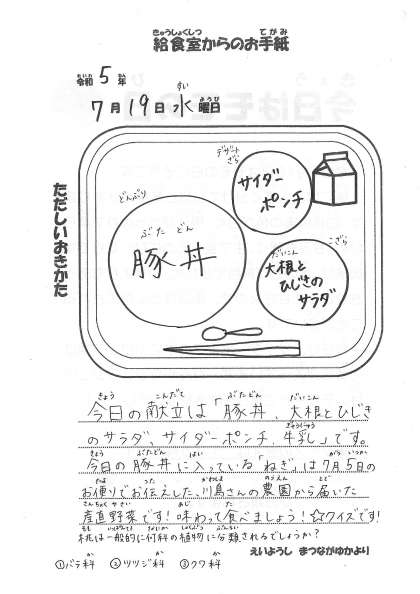 きゅうしょくしつ てがみ
給食室からのお手紙
れいわ ねん
令和 5 年
すい ようび
7月19日 水 曜日
ただしいおきかた
どんぶり
ぶた どん
豚丼
デザート
ざら
サイダー
ポンチ
こざら
だいこん
大根と
ひじきの
サラダ
きょう こんだて ぶたどん だいこん
今日の献立は「豚丼、大根とひじき
ぎゅうにゅう
のサラダ、サイダーポンチ、牛乳」です。
きょう ぶたどん はい がつ いつか
今日の豚丼に入っている「ねぎ」は7月5日の
たよ つた かわしま のうえん とど
お便りでお伝えした、川島さんの農園から届いた
さんちょくやさい あじ た
産直野菜です!味わって食べましょう!☆クイズです!
もも いっぱんてき なにか しょくぶつ ぶんるい
桃は一般的に何科の植物に分類されるでしょうか?
か か か
①バラ科 ②ツツジ科 ③クワ科
えいようし まつながゆかより